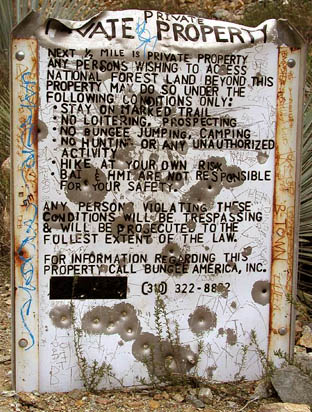 PRIVATE
PRIVATE PROPERTY
NEXT ½ MILE IS PRIVATE PROPERTY
ANY PERSONS WISHING TO ACCESS
NATIONAL FOREST LAND BEYOND THIS
PROPERTY MAY DO SO UNDER THE
FOLLOWING CONDITIONS ONLY:
• STAY ON MARKED TRAIL
• NO LOITERING, PROSPECTING
• NO BUNGEE JUMPING, CAMPING
• NO HUNTIN OR ANY UNAUTHORIZED
ACTIVITY.
• HIKE AT YOUR OWN RISK
• BAI & HMI ARE NOT RESPONSIBLE
FOR YOUR SAFETY.
ANY PERSON VIOLATING THESE
CONDITIONS WILL BE TRESPASSING
& WILL BE PROSECUTED TO THE
FULLEST EXTENT OF THE LAW.
FOR INFORMATION REGARDING THIS
PROPERTY CALL BUNGEE AMERICA, INC.
(310) 322-88 2